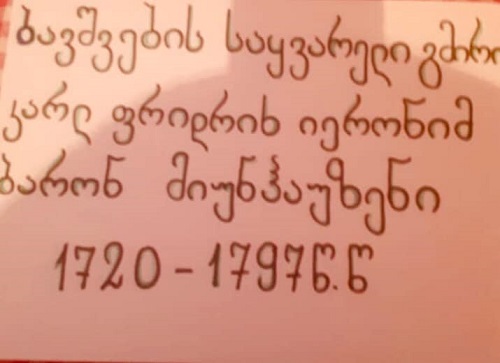 ბავშვების საყვარელი გმირი
კარლ ფრიდრიხ იერონიმ
ბარონ მიუნჰაუზენი
1720-1797წ.წ